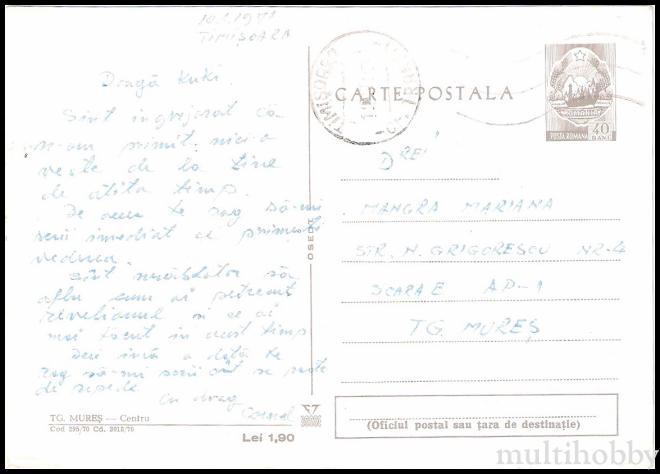 10.1.1971
TIMIȘOARA
Dragă Kuki.
Sînt îngrijorat că
n-am primit nici o
veste de la tine
de atîta timp.
De aceea te rog să-mi
scrii imediat ce primești
vederea.
Sînt nerăbdător să
aflu cum ai petrecut
revelionul și ce ai
mai făcut în acest timp
Deci încă o dată te
rog să-mi scrii cît se poate
de repede.
Cu drag
Cornel
TG. MUREȘ — Centru
Cod 295/70 Cd. 3018/70
Lei 1,90
OSEDT
TIMIȘOARA
CARTE POSTALA
ROMANIA
POSTA ROMANA 40
BANI
MANGRA MARIANA
STR. N. GRIGORESCU NR-4
SCARA E AP-1
TG. MUREȘ
(Oficiul postal sau țara de destinație)
multihobby